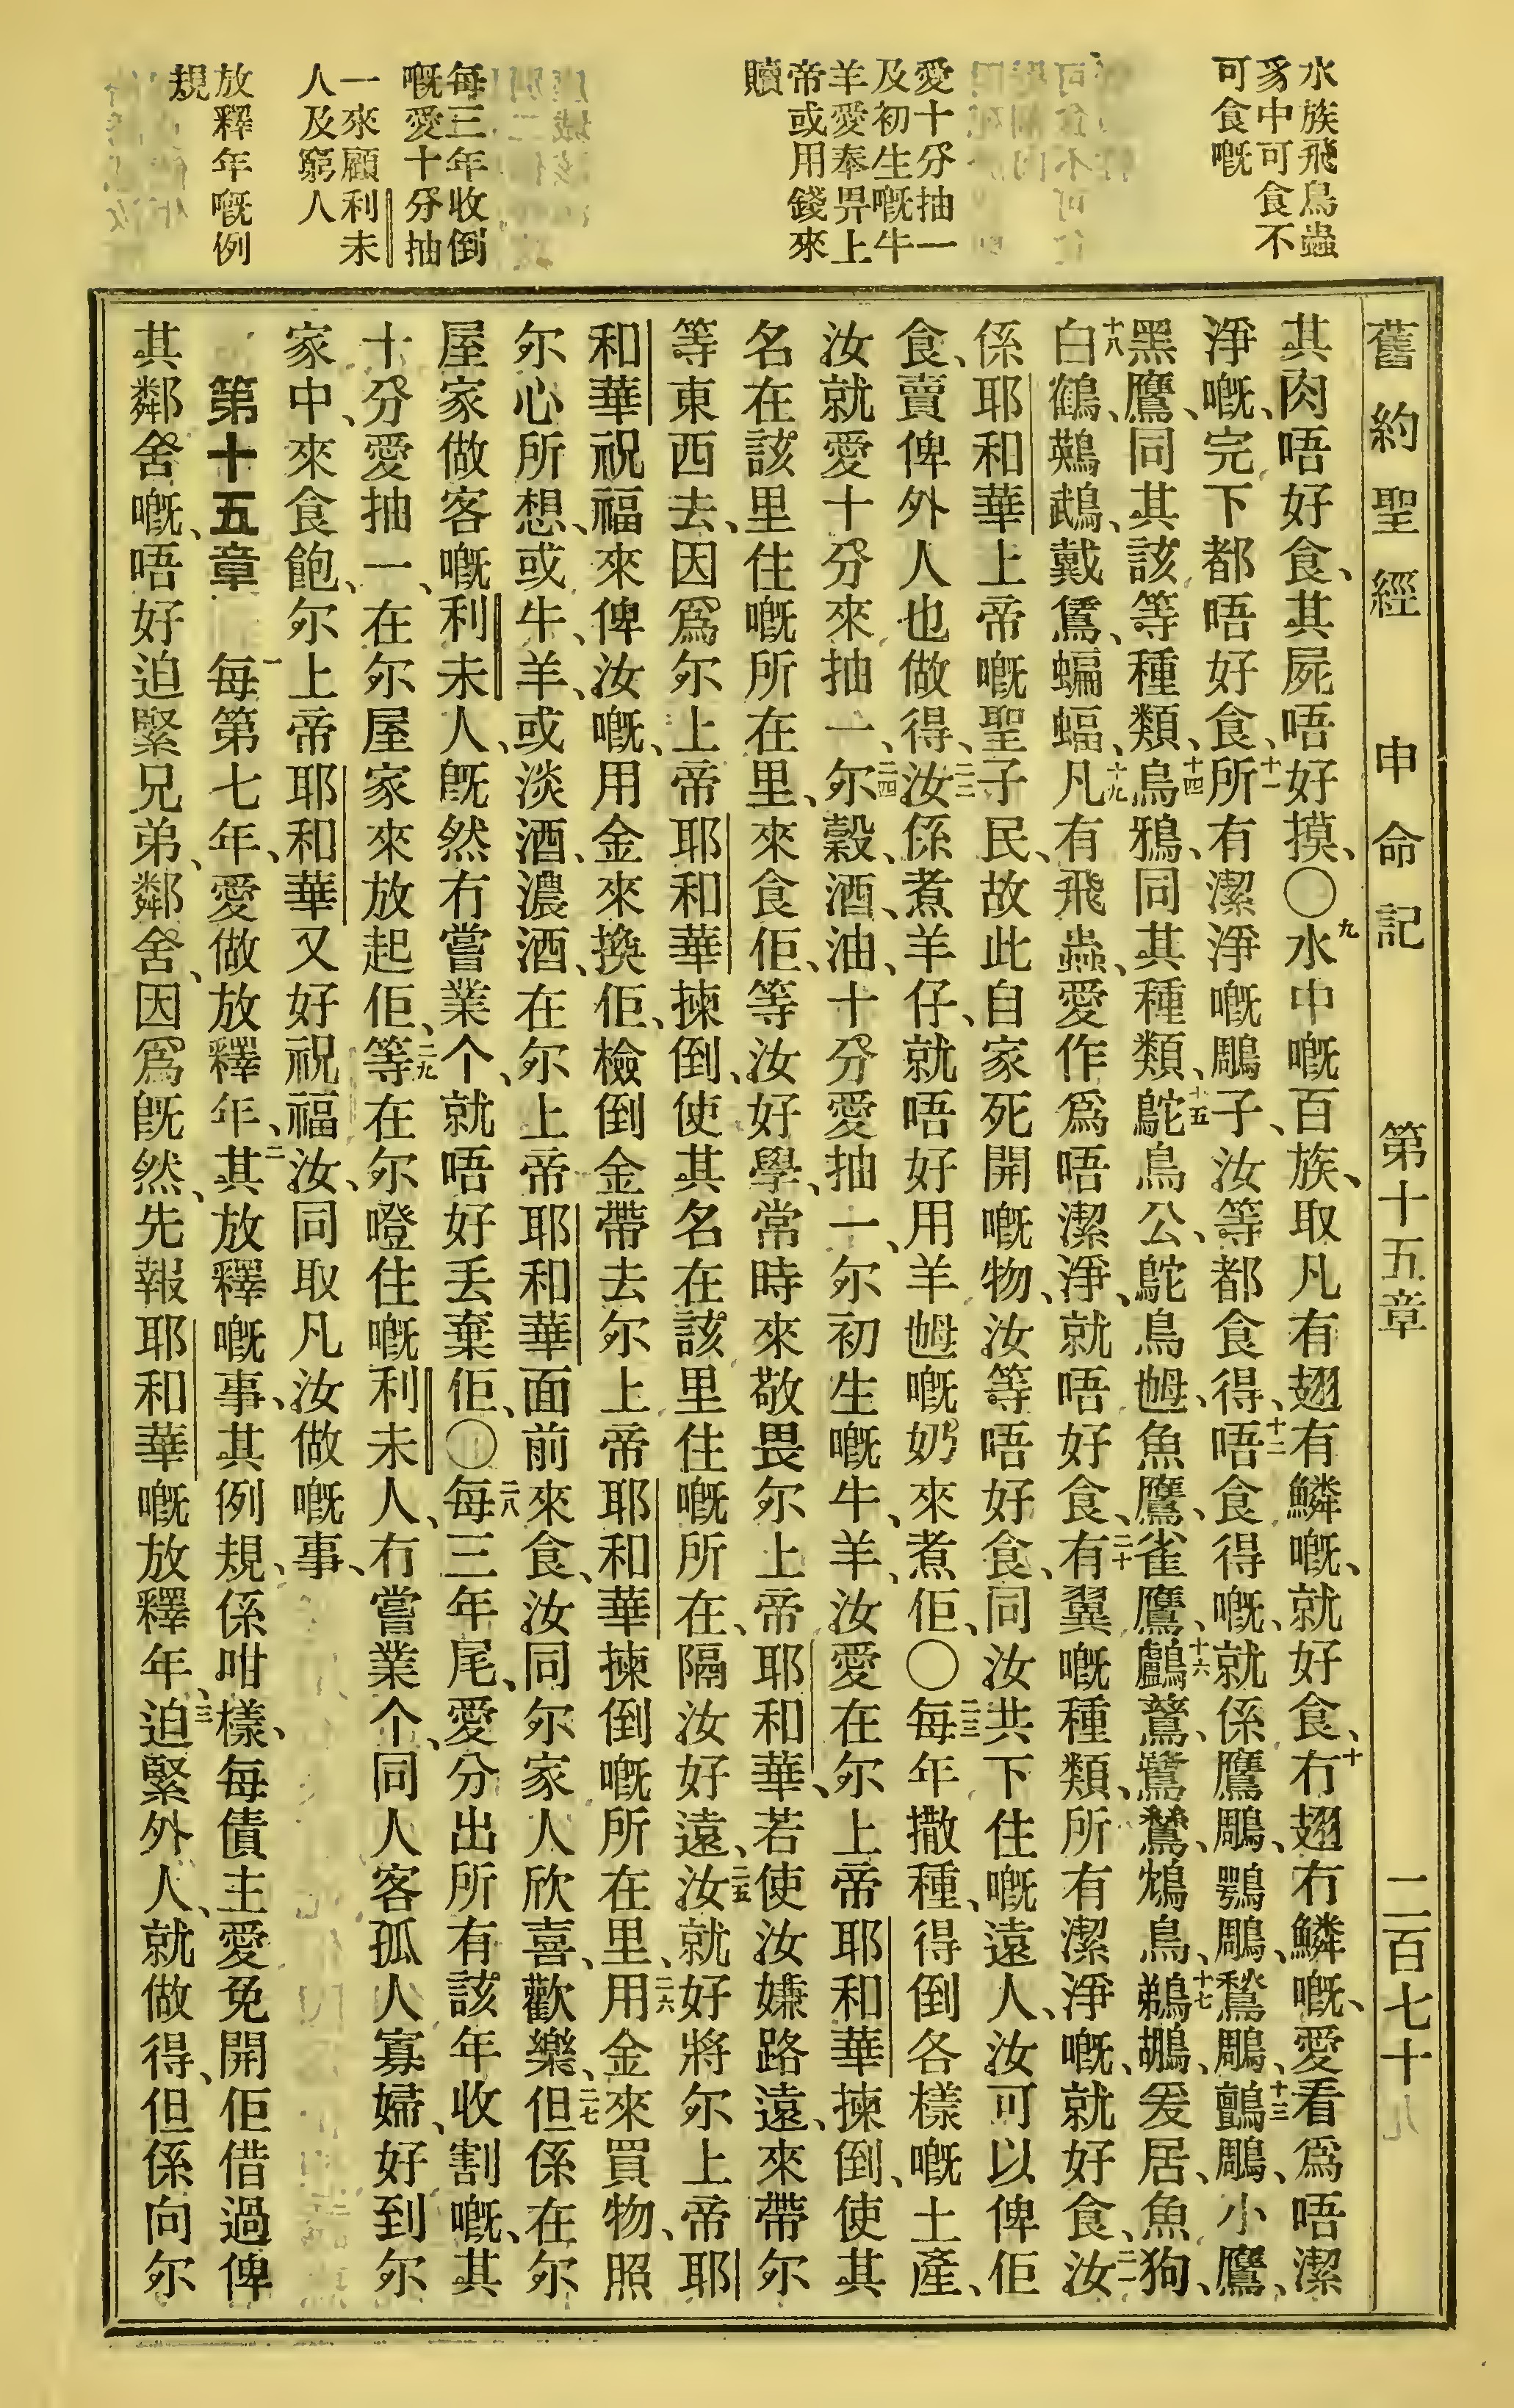 水族飛鳥蟲
豸中可食不
可食嘅
愛十分抽一
及初生嘅牛
羊愛奉畀上
帝或用錢來
贖
每三年收倒
嘅愛十分抽
一來顧利未
人及窮人
放釋年嘅例
規
舊約聖經 申命記 第十五章 二百七十九
其肉唔好食、其屍唔好摸、〇九水中嘅百族、取凡有翅有鱗嘅、就好食、十冇翅冇鱗嘅、愛看爲唔潔
淨嘅、完下都唔好食、十一所有潔淨嘅鵰子、汝等都食得、十二唔食得嘅、就係鷹鵰、鶚鵰、鶖鵰、十三鸇鵰、小鷹、
黑鷹、同其該等種類、十四烏鴉、同其種類、十五鴕鳥公、鴕鳥𫰡、魚鷹、雀鷹、十六鸕鶿、鷺鷥、鴆鳥、十七鵜鶘、爰居、魚狗、
十八白鶴、鷬鵡、戴鵀、蝙蝠、十九凡有飛蟲、愛作爲唔潔淨、就唔好食、二十有翼嘅種類、所有潔淨嘅、就好食、二一汝
係耶和華上帝嘅聖子民、故此自家死開嘅物、汝等唔好食、同汝共下住嘅遠人、汝可以俾佢
食、賣俾外人也做得、二二汝係煮羊仔、就唔好用羊𫰡嘅奶來煮佢、〇二三每年撒種、得倒各樣嘅土產、
汝就愛十分來抽一、二四尔穀、酒、油、十分愛抽一、尔初生嘅牛、羊、汝愛在尔上帝耶和華揀倒、使其
名在該里住嘅所在里、來食佢、等汝好學、常時來敬畏尔上帝耶和華、若使汝嫌路遠、來帶尔
等東西去、因爲尔上帝耶和華揀倒、使其名在該里住嘅所在、隔汝好遠、二五汝就好將尔上帝耶
和華祝福來俾汝嘅、用金來換佢、檢倒金帶去尔上帝耶和華揀倒嘅所在里、二六用金來買物、照
尔心所想、或牛、羊、或淡酒、濃酒、在尔上帝耶和華面前來食、汝同尔家人欣喜、歡樂、二七但係在尔
屋家做客嘅利未人、旣然冇嘗業个、就唔好丢棄佢、〇二八每三年尾、愛分出所有該年收割嘅、其
十分愛抽一、在尔屋家來放起佢、二九等在尔䠬住嘅利未人、冇嘗業个、同人客孤人寡婦、好到尔
家中、來食飽、尔上帝耶和華又好祝福汝、同取凡汝做嘅事、
第十五章 一每第七年、愛做放釋年、二其放釋嘅事、其例規、係咁樣、每債主愛免開佢借過俾
其鄰舍嘅、唔好迫緊兄弟、鄰舍、因爲旣然、先報耶和華嘅放釋年、三迫緊外人、就做得、但係向尔